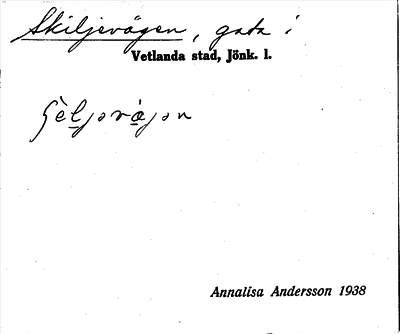 Skiljevägen, gata i
Vetlanda stad, Jönk. l.
Annalisa Andersson 1938